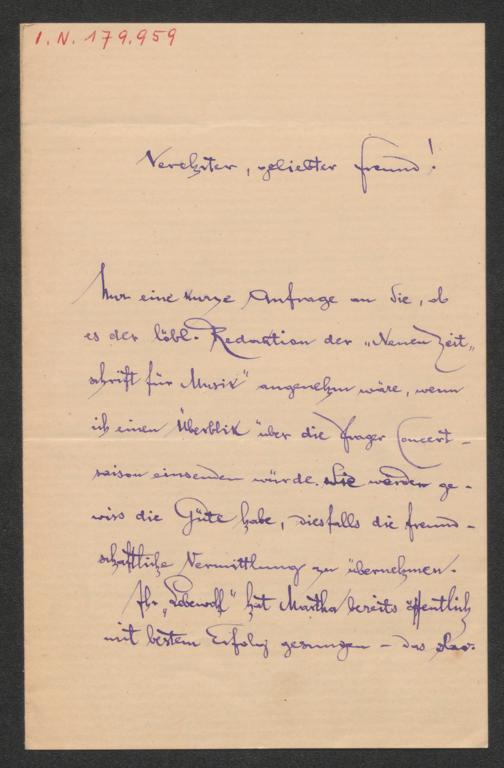 I.N. 179.959
Verehrter, geliebter Freund!
Nur eine kurze Anfrage an Sie, ob
es der löbl. Redaktion der „Neuen Zeit„
schrift für Musik" angenehm wäre, wenn
ich einen Überblik über die Prager Concert-
saison einsenden würde. Sie werden ge-
wiss die Güte habe, diesfalls die freund-
schaftliche Vermittlung zu übernehmen.
Ihr „Lebewohl" hat Martha bereits öffentlich
mit bestem Erfolg gesungen – das